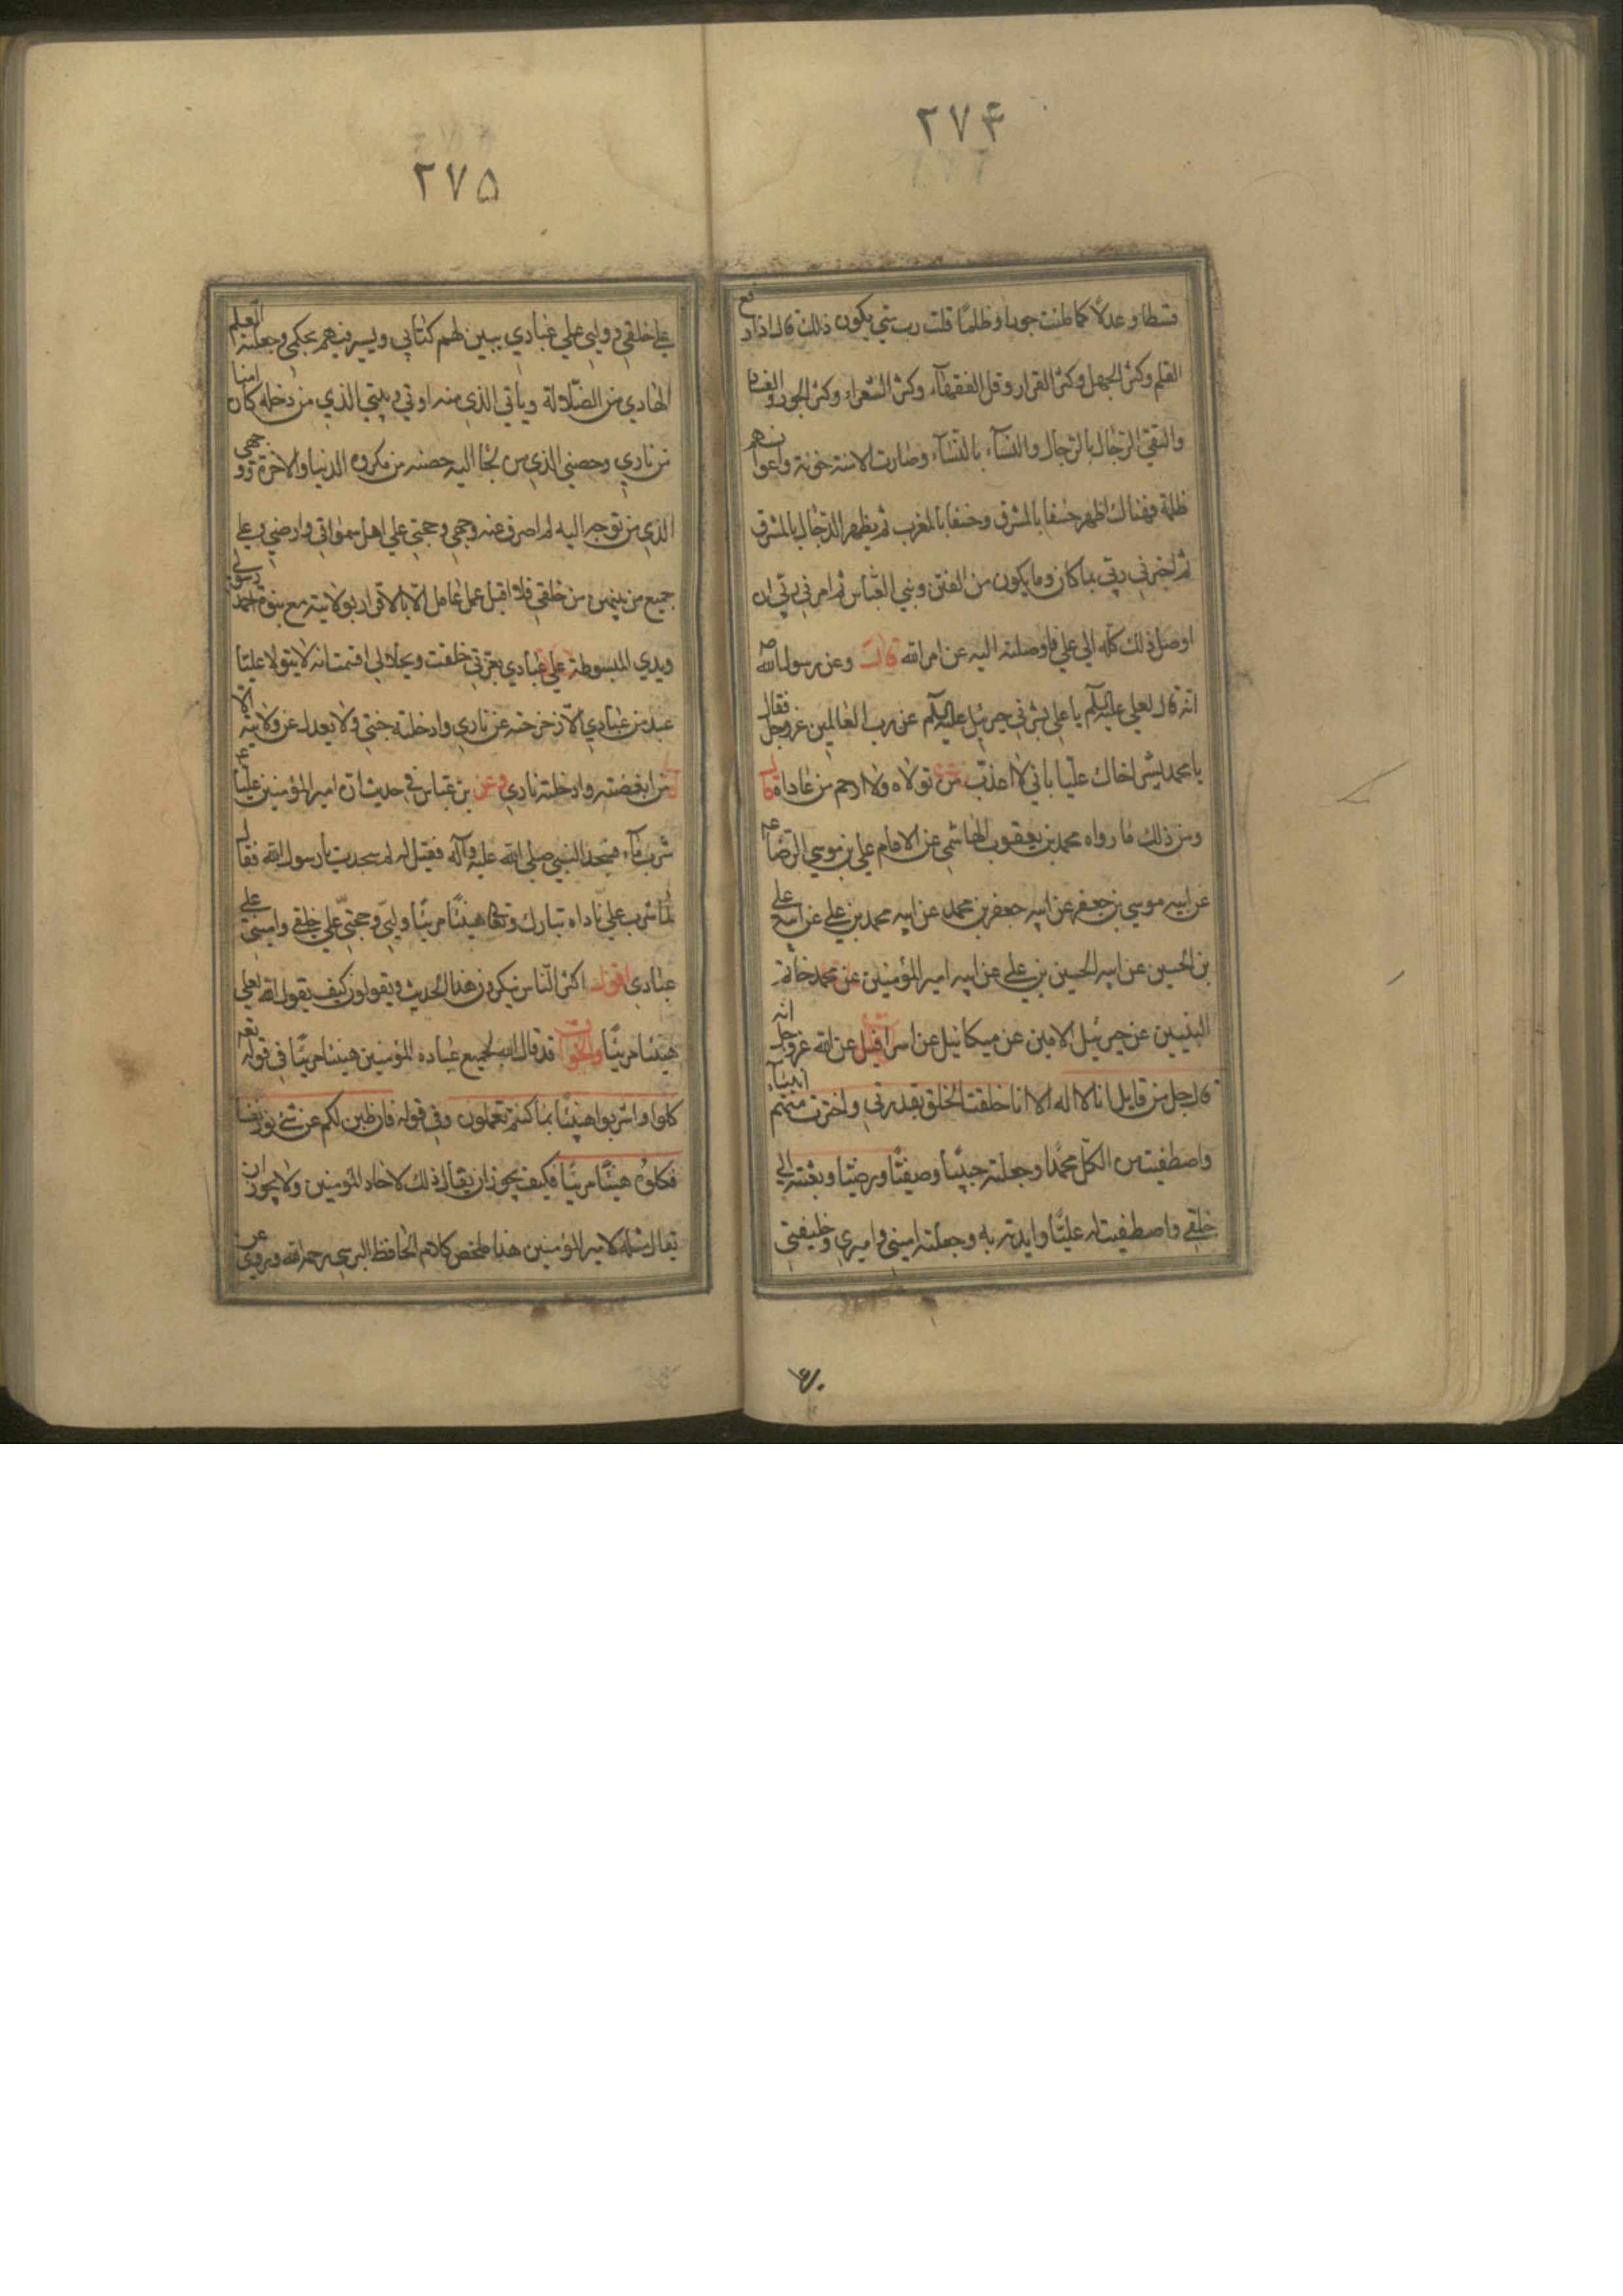 ۲۷۴
قسطا و عدلاً كما ملئت جورا و ظلمًا قلت رب متي يكون ذالك قال اذا رفع
العلم وكثر الجهل وكثر القرار وقل الفقهآء وكثر الشعراء وكثر الجور والفساد
والتقي الرجال بالرجال والنسآء بالنسآء وصارت الامنة خونة واعوانهم
ظلمة فهناك اظهر خسفا بالمشرق وخسفا بالمغرب ثم يظهر الدجال بالمشرق
ثم اخبرني ربي بما كان وما يكون من الفتن وبني العباس ثم امرني ربي ان
اوصل ذلك كله الي علي فاوصلته اليه عن امر الله قال وعن رسول الله ص
انه قال لعلي عليه السلام يا علي بشرني جبرئيل عليه السلام عن رب العالمين عزوجل فقال
يا محمد بشر اخاك عليا باني لا اعذب من تولاه ولا ارحم من عاداه قال
ومن ذلك ما رواه محمد بن يعقوب الهاشمي عن الامام علي بن موسي الرضا عم
عن ابيه موسي بن جعفر عن ابيه جعفر بن محمد عن ابيه محمد بن علي عن ابيه علي
بن الحسين عن ابيه الحسين بن علي عن ابيه امير المؤمنين عن محمد خاتم
النبيين عن جبرئيل الامين عن ميكائيل عن اسرافيل عن الله عزوجل انه
قال جل من قايل انا لا اله الا انا خلقت الخلق بقدرتي واخترت منهم انبيآء
واصطفيت من الكل محمدا وجعلته حبيبا وصفيًّا ورضيا وبعثته الي
خلقي واصطفيت له عليًّا وايدته به وجعلته اميني واميري وخليفتي
۲۷۵
علي خلقي ووليي علي عبادي يبين لهم كتابي ويسير فيهم بحكمي وجعلته العلم
الهادي من الضلالة وبابي الذي منه اوتي وبيتي الذي من دخله كان امنا
من ناري وحصني الذي من لجا اليه حصنه من مكروه الدنيا والاخرة ووجهي
الذي من توجه اليه لم اصرف عنه وجهي وحجتي علي اهل سمواتي وارضي وعلي
جميع من بينهن من خلقي فلا اقبل عمل عامل الا بالاقرار بولايته مع نبوة احمد رسولي
ويدي المبسوطة علي عبادي بعزتي خلقت وبجلالي اقسمت انه لا يتولا عليًا
عبد من عبادي الا زحزحته عن ناري وادخلته جنتي ولا يعدل عن ولايته الا
من ابغضته وادخلته ناري وعن بن عباس في حديث ان امير المؤمنين عليا عم
شرب مآء فسجد النبي صلي الله عليه وآله فقيل له لم سجدت يا رسول الله فقال
لما شرب علي ناداه تبارك وتعالي هنيئًا مريئًا وليي وحجتي علي خلقي واميني علي
عبادي اقول اكثر الناس ينكرون هذا الحديث ويقولون كيف يقول الله لعلي
هنيئا مريئًا والجواب قد قال الله لجميع عباده المؤمنين هنيئا مريئًا في قوله تعه
كلوا واشربوا هنيئًا بما كنتم تعملون وفي قوله فان طبن لكم عن شيء نفسا
فكلوه هنيئًا مريئًا فكيف يجوز ان يقال ذلك لاحاد المؤمنين ولا يجوز ان
يقال مثله لامير المؤمنين هذا ملخص كلام الحافظ البرسي رحمه الله وروي عن